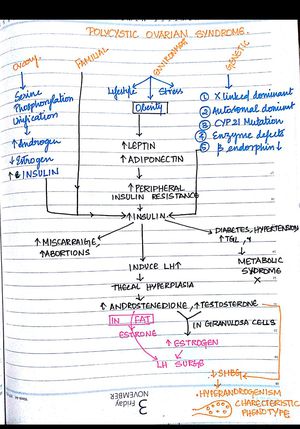 POLYCYSTIC OVARIAN SYNDROME.
Ovary
FAMILIAL
ENVIRONMENT
GENETIC
Serine
Phosphorylation
Unification
↑ Androgen
↓ Estrogen
↑ INSULIN
Lifestyle
Stress
Obesity
① X linked dominant
② Autosomal dominant
③ CYP 21 Mutation
④ Enzyme defects
⑤ β endorphin ↓
↑ LEPTIN
↑ ADIPONECTIN
↑ PERIPHERAL
INSULIN RESISTANCE
↑ INSULIN
↑ MISCARRAIGE,
↑ ABORTIONS
DIABETES, HYPERTENSION
↑ TGL,
METABOLIC
SYDROME
X
INDUCE LH↑
THECAL HYPERPLASIA
↑ ANDROSTENEDIONE, ↑ TESTOSTERONE
IN FAT
ESTRONE
IN GRANULOSA CELLS
↑ ESTROGEN
LH SURGE
↓ SHBG
↓ HYPERANDROGENISM
CHARECTERISTIC
PHENOTYPE
3 Friday
NOVEMBER